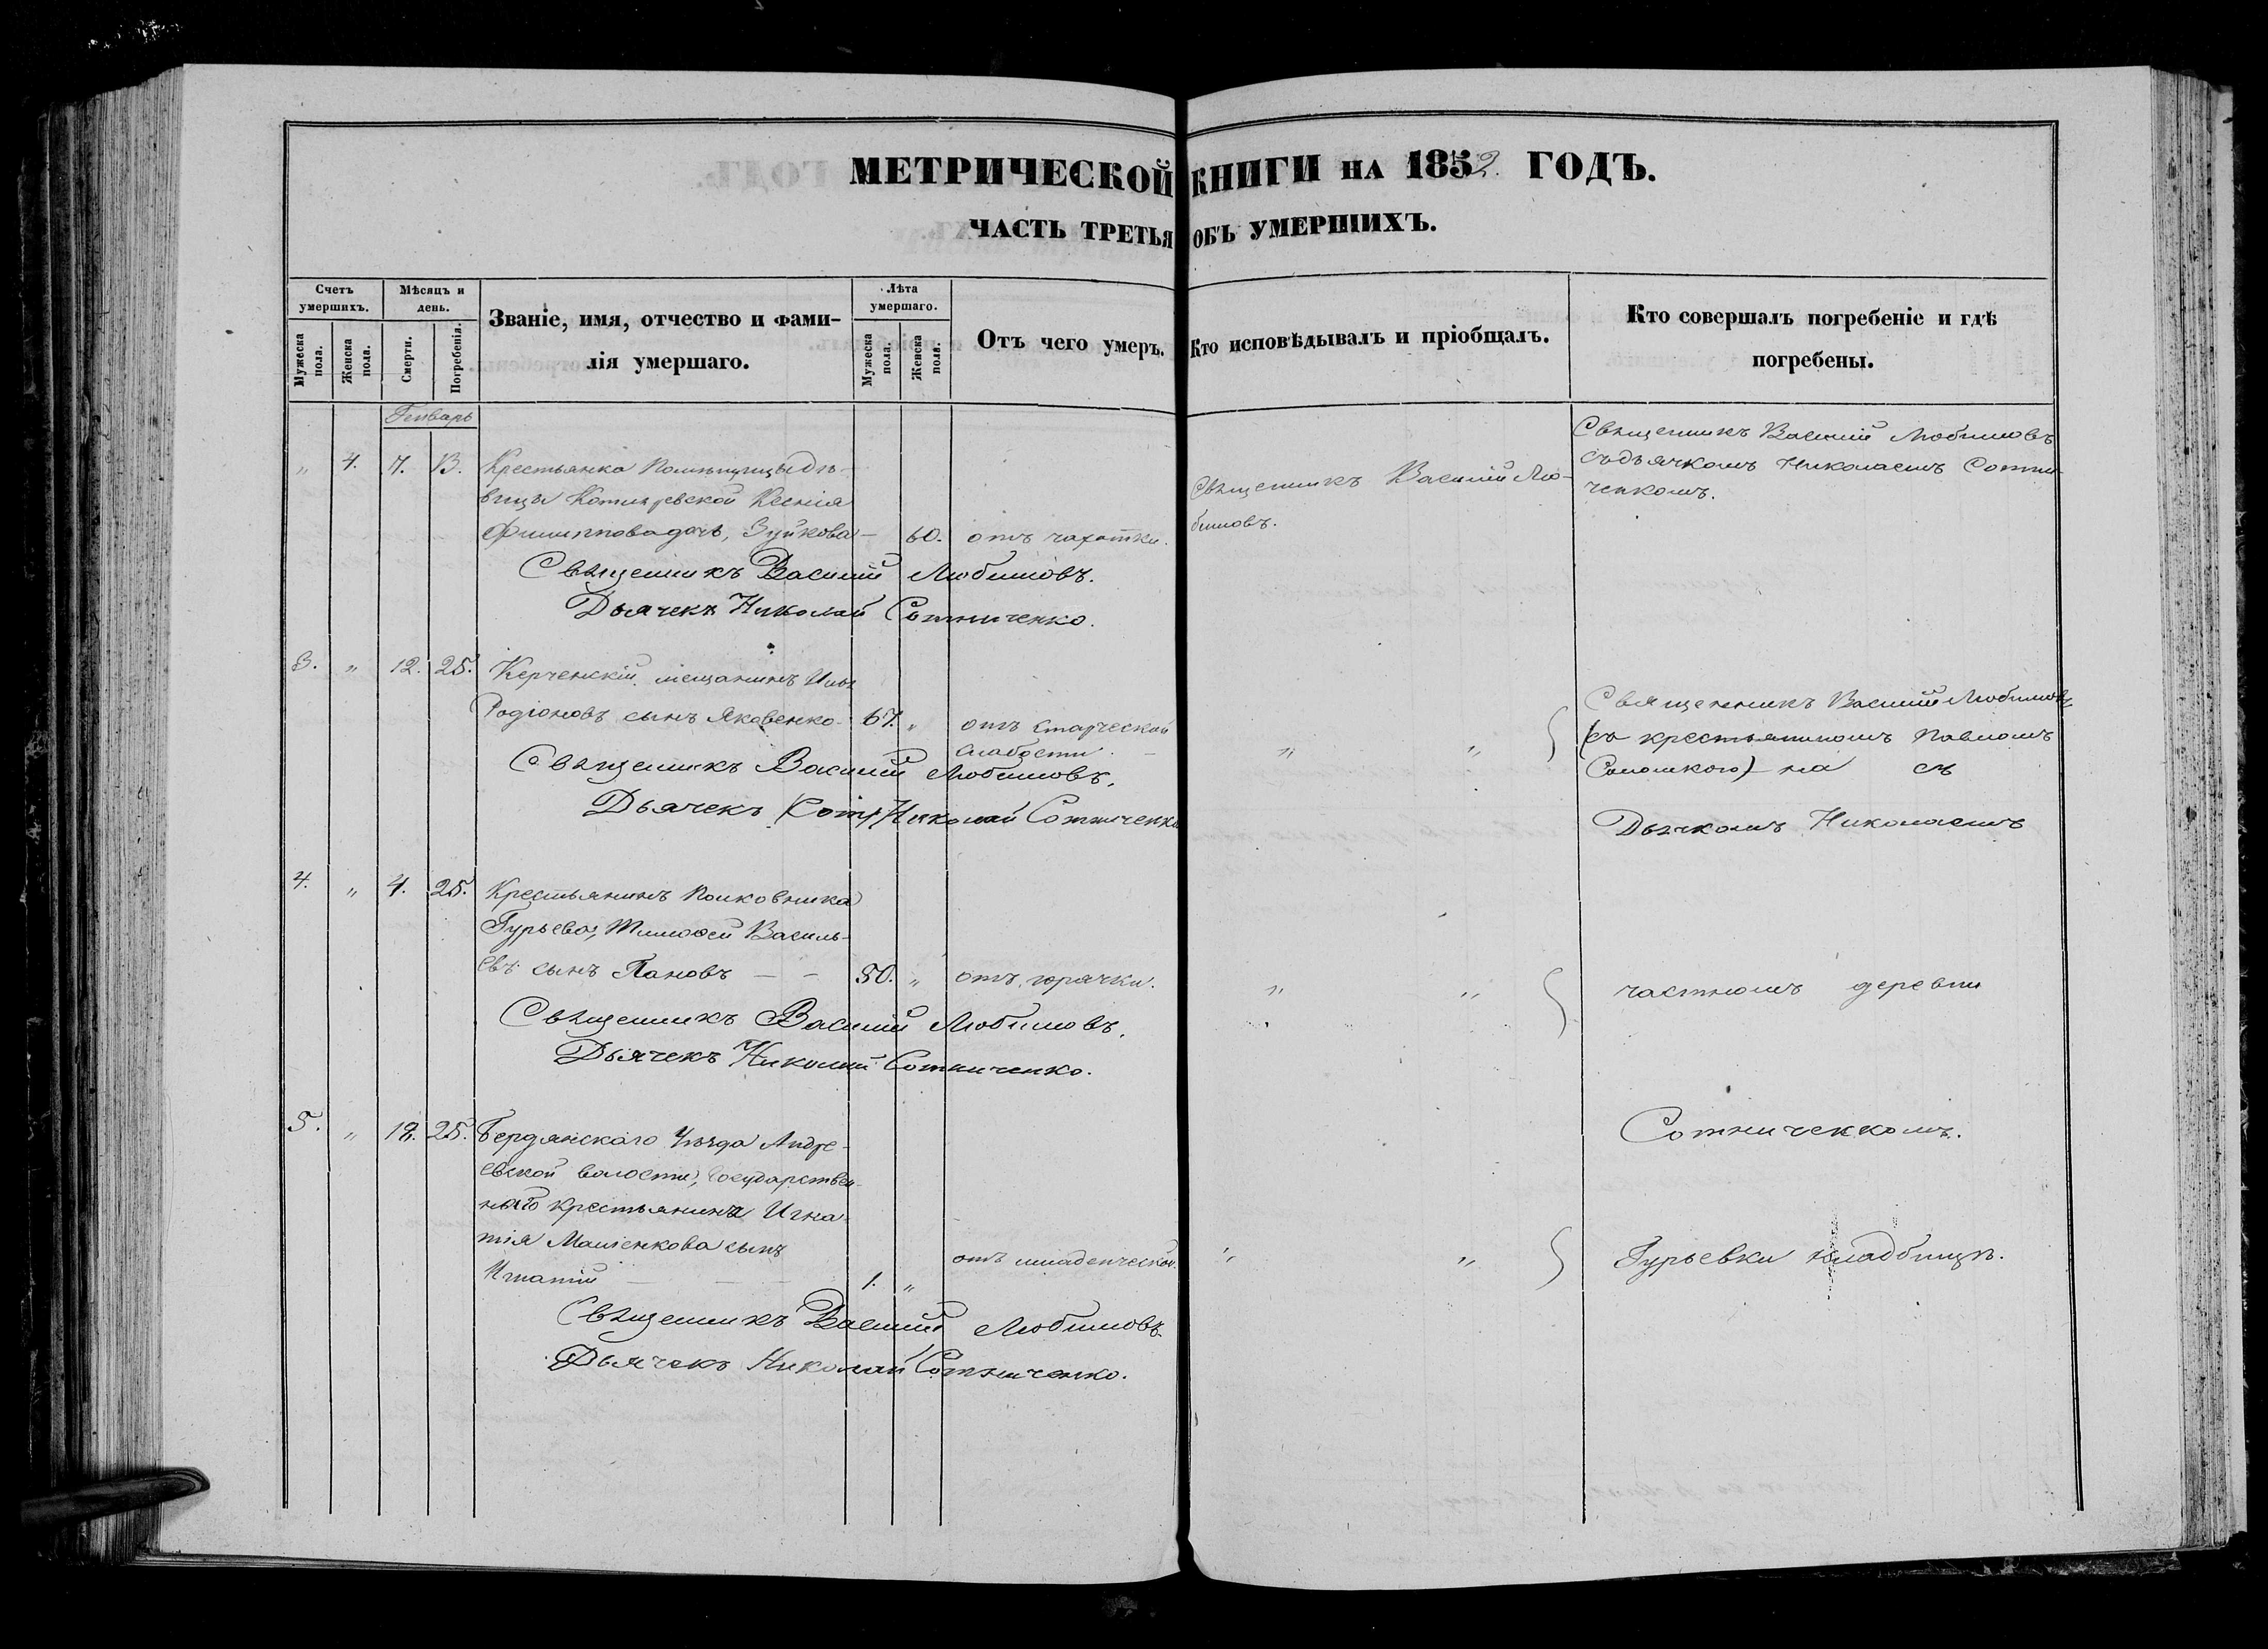 МЕТРИЧЕСКОЙ КНИГИ НА 1852. ГОДЪ.
ЧАСТЬ ТРЕТЬЯ ОБЪ УМЕРШИХЪ.
Счетъ умершихъ.
Мужеска пола.
Женска пола.
Мѣсяцъ и день.
Смерти.
Погребенія.
Званіе, имя, отчество и фами-
лія умершаго.
Лѣта умершаго.
Мужеска пола.
Женска пола.
Отъ чего умеръ.
Кто исповѣдывалъ и пріобщалъ.
Кто совершалъ погребеніе и гдѣ
погребены.
Генварь
„ 4. 7. 13. Крестьянка Помѣщицы дѣ-
вицы Котляревской Ксенія
Филиппова дочь, Зуйкова — 60. отъ чахотки.
Священникъ Василій Лю-
бимовъ.
Священникъ Василій Любимовъ
съ дьячкомъ Николаемъ Сотни-
ченкомъ.
Священникъ Василій Любимовъ.
Дьячекъ Николай Сотниченко.
3. „ 12. 25. Керченскій мещанинъ Илья
Родіоновъ сынъ Яковенко - 67. „ отъ старческой
слабости. —
„ „
Священникъ Василій Любимовъ
(съ крестьяниномъ Павломъ
) на съ
Дьячкомъ Николаемъ
Священникъ Василій Любимовъ.
Дьячекъ (Сот) Николай Сотниченко
4. „ 4. 25. Крестьянинъ Полковника
Гурьева, Тимофей Василь-
евъ сынъ Пановъ — — 50. „ отъ горячки.
„ „ частномъ деревни
Священникъ Василій Любимовъ.
Дьячекъ Николай Сотниченко.
5. „ 19. 25. Бердянскаго Уѣзда Андре-
евской волости, Государствен-
наго крестьянина Игна-
тія сынъ
Игнатій — — — 1. „ отъ младенческой.
„ „
Сотниченкомъ.
Гурьевки кладбищѣ.
Священникъ Василій Любимовъ.
Дьячекъ Николай Сотниченко.